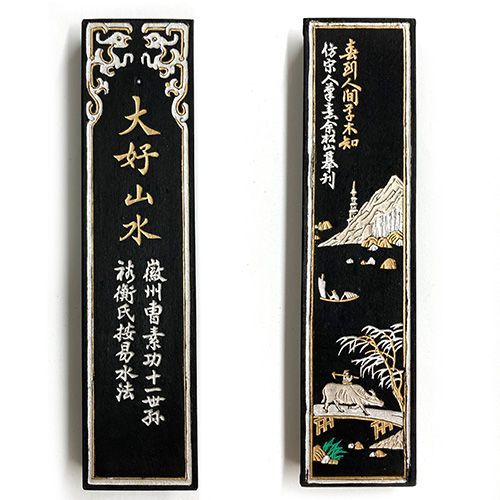 大好山水
徽州曹素功十一世孙
裕衡氏按易水法
春到人间草木知
仿宋人笔意余松山摹刊